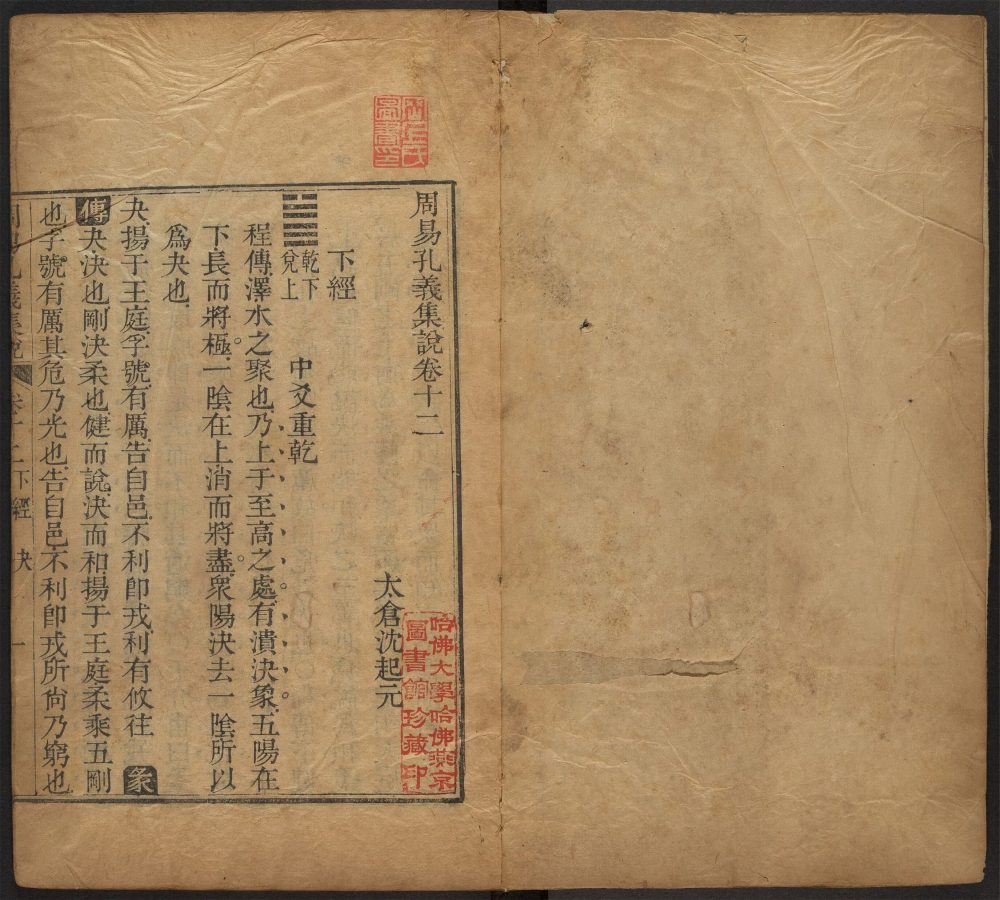 周易孔義集說卷十二
太倉沈起元
下經
乾下
兌上
中爻重乾
程傳澤水之聚也乃上于至高之處有潰決象五陽在
下長而將極一陰在上消而將盡衆陽決去一陰所以
爲夬也
夬揚于王庭孚號有厲告自邑不利卽戎利有攸往彖
傳夬決也剛決柔也健而說決而和揚于王庭柔乘五剛
也孚號有厲其危乃光也告自邑不利卽戎所尙乃窮也
周易孔義集說 卷十二下經 夬 一
哈佛大學哈佛燕京
圖書館珍藏印
圖書印